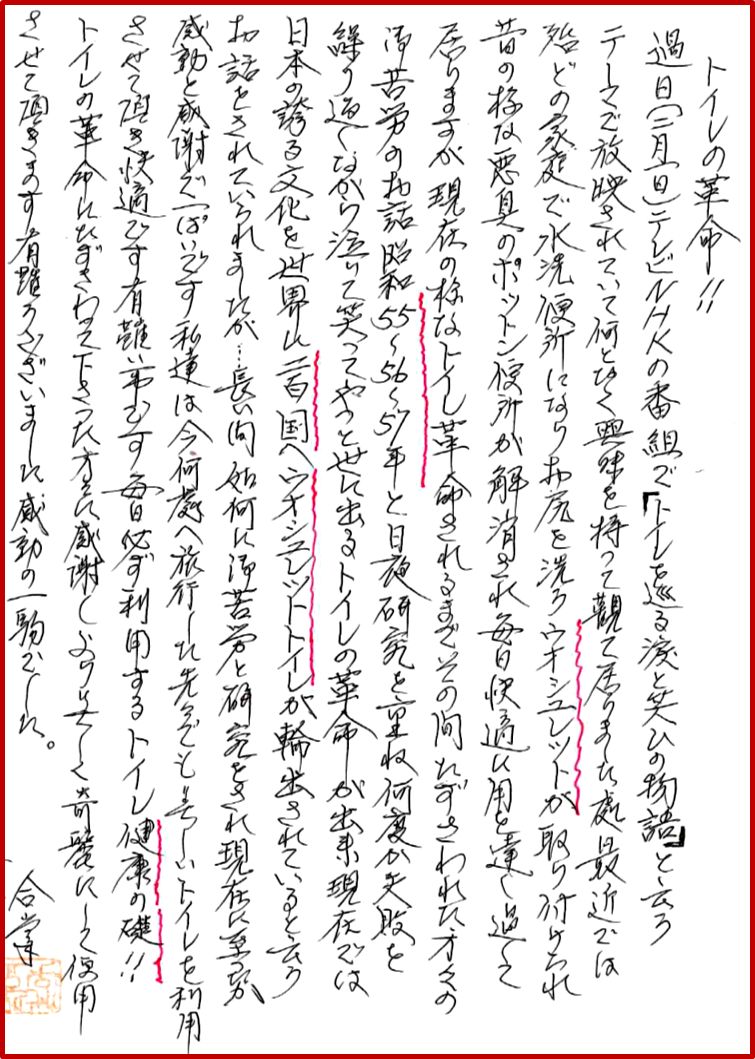 トイレの革命!!
過日(二月一日)テレビNHKの番組で「トイレを巡る涙と笑ひの物語」と云う
テーマで放映されていて何となく興味を持って観て居りました処最近では
殆どの家庭で水洗便所になりお尻を洗うウオシュレットが取り付けられ
昔の様な悪臭のポットン便所が解消され毎日快適に用を達し過して
居りますが現在の様なトイレ革命されるまでその間たずさわれた方々の
御苦労のお話昭和55〜56〜57年と日夜研究を重ね何度か失敗を
繰り返しながら泣いて笑ってやっと世に出るトイレの革命が出来現在では
日本の誇る文化を世界に百国へウオシュレットトイレが輸出されていると云う
お話をされていられましたが…長い間如何に御苦労と研究をされ現在に至るか
感動と感謝で一ぱいです私達は今何處へ旅行した先々でも美しいトイレを利用
させて頂き快適です有難い事です毎日必ず利用するトイレ健康の礎!!
トイレの革命にたずさわって下さった方々に感謝しより美しく奇麗にして使用
させて頂きます有難うございました感動の一駒でした。
合掌